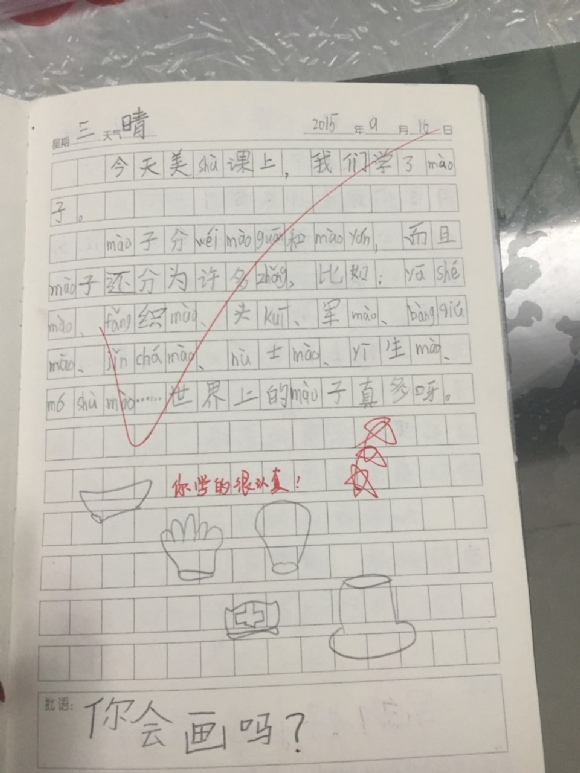 星期 三 天气 晴 2015 年 9 月 16 日
今天美shù课上，我们学了mào
子。
mào子分wéi mào guān和mào yán，而且
mào子还分为许多zhǒng，比如：yā shé
mào、fǎng织mào、头kuī、军mào、bàng qiú
mào、jǐn chá mào、nǚ士mào、yī生mào、
mó shù mào……世界上的mào子真多呀。
你学的很认真！
批语：你会画吗？